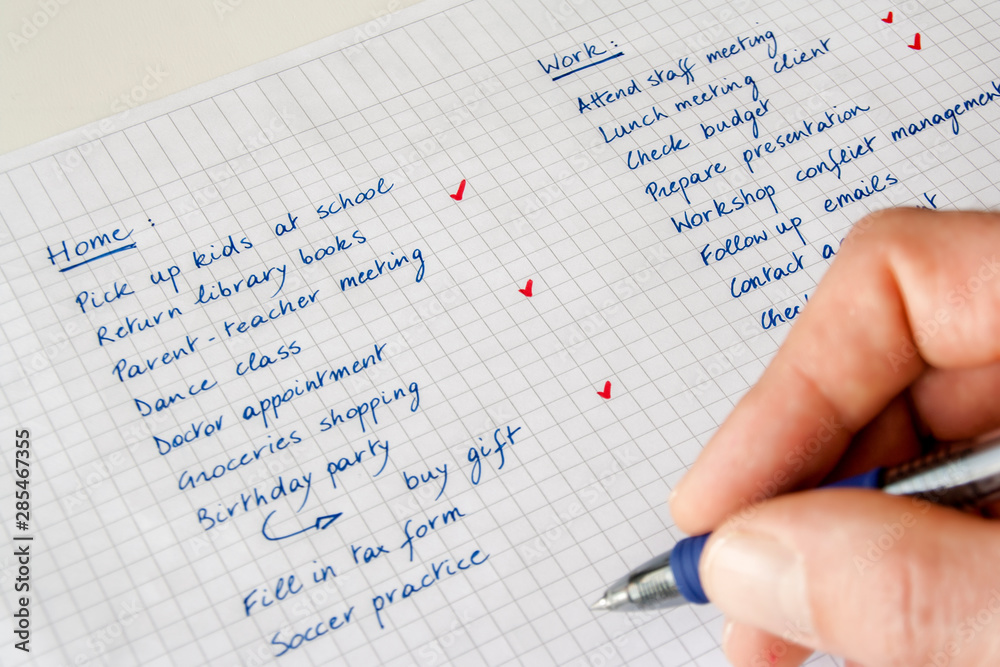 Home:
Pick up kids at school
Return library books
Parent-teacher meeting
Dance class
Doctor appointment
Groceries shopping
Birthday party
buy gift
Fill in tax form
Soccer practice
Work:
Attend staff meeting
Lunch meeting client
Check budget
Prepare presentation
Workshop conflict management
Follow up emails
Contact
Adobe Stock | #285467355